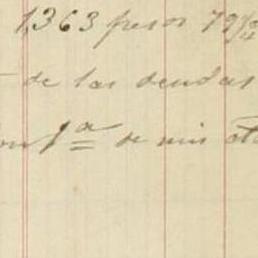 1,363 pesos 79
de las deudas
on fª de mis